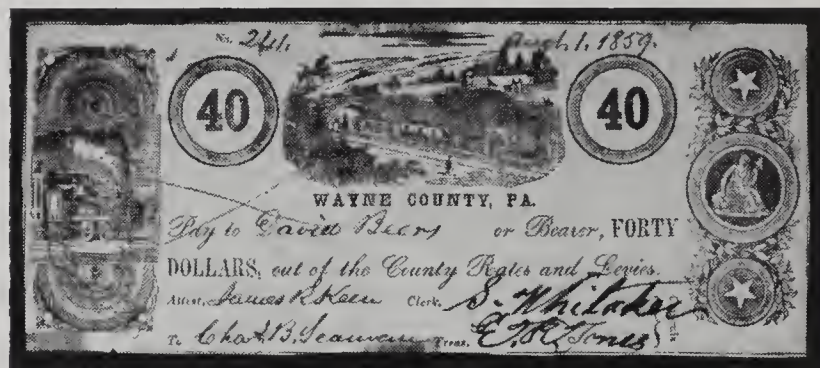 No. 241.
1, 1859.
40
40
WAYNE COUNTY, PA.
Pay to David Beers or Bearer, FORTY
DOLLARS, out of the County Rates and Levies.
Attest, James R. Keen Clerk. S. Whitaker
To Chas. B. Treas. Jones